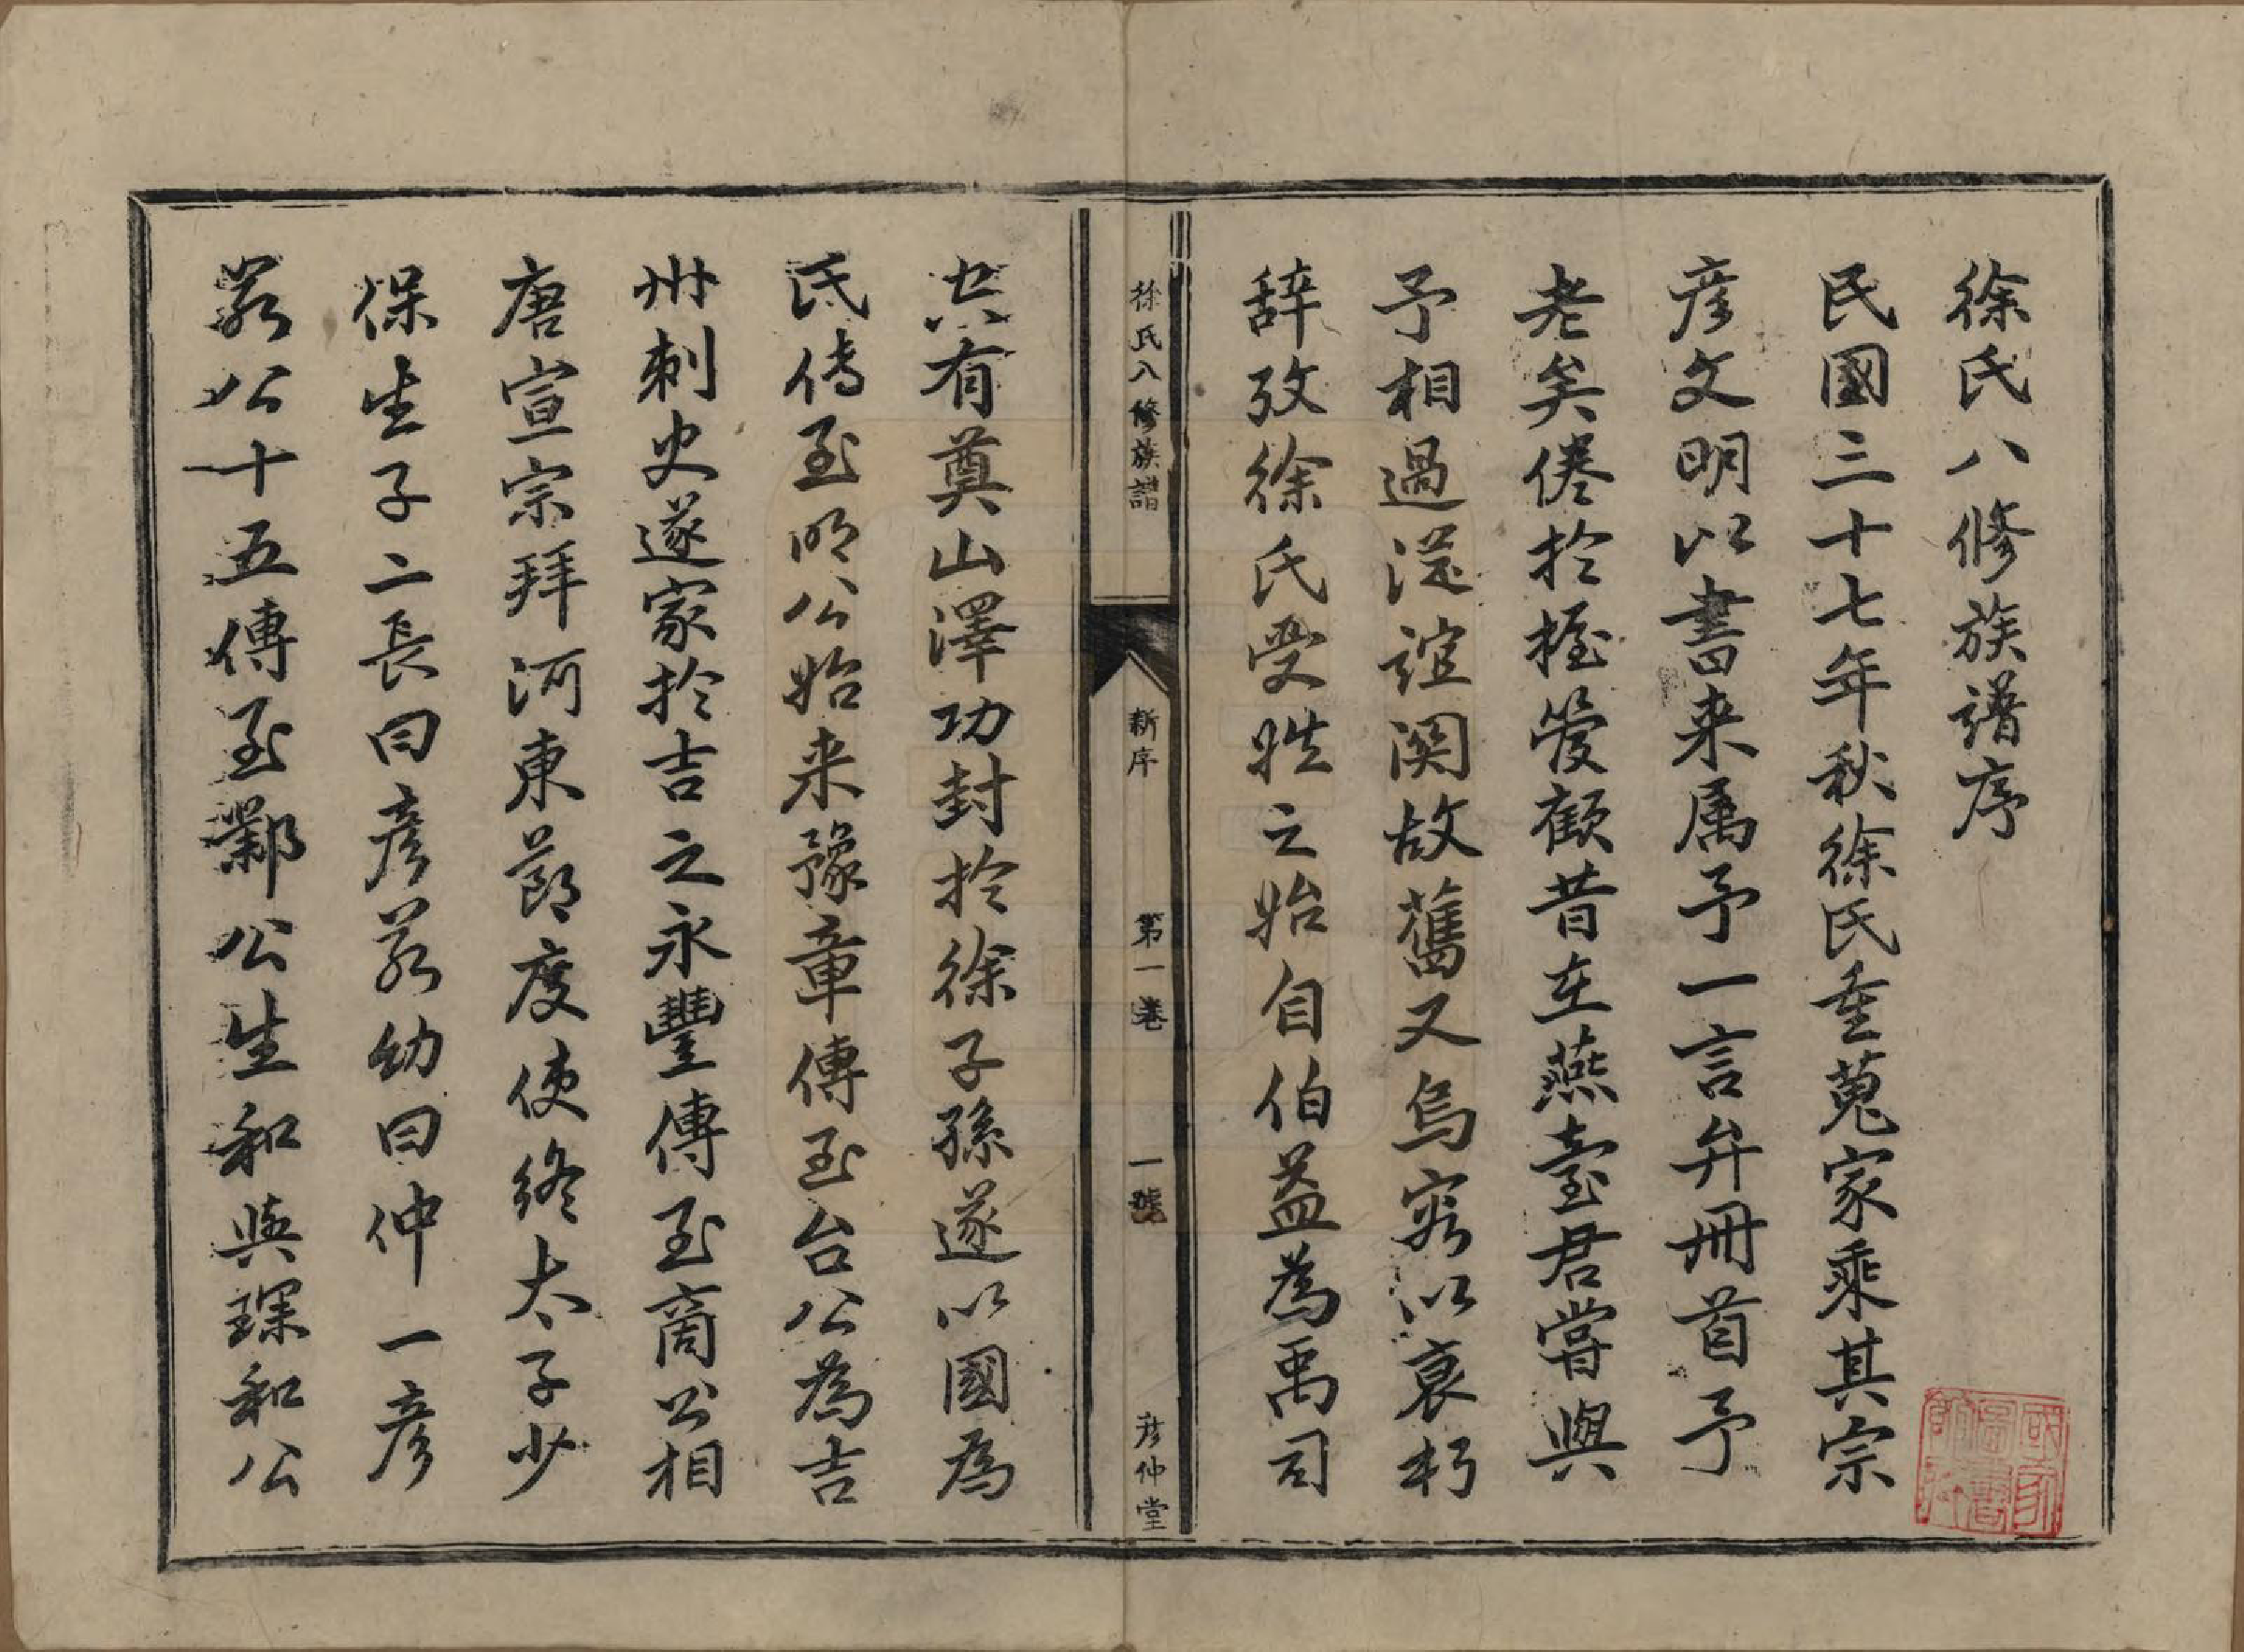 徐氏八修族譜序
民國三十七年秋徐氏重蒐家乘其宗
彦文明以書来属予一言弁冊首予
老矣倦扵握管顧昔在燕臺君嘗與
予相過從誼関故舊又烏容以衰朽
辞攷徐氏受姓之始自伯益為禹司
空有奠山澤功封扵徐子孫遂以國為
氏傳至明公始来豫章傳至台公為吉
州刺史遂家扵吉之永豐傳至商公相
唐宣宗拜河東節度使終太子少
保生子二長曰彦若幼曰仲一彦
若公十五傳至鄴公生和與琛和公
徐氏八修族譜
新序
第一卷
一號
彦仲堂
國家圖書館藏